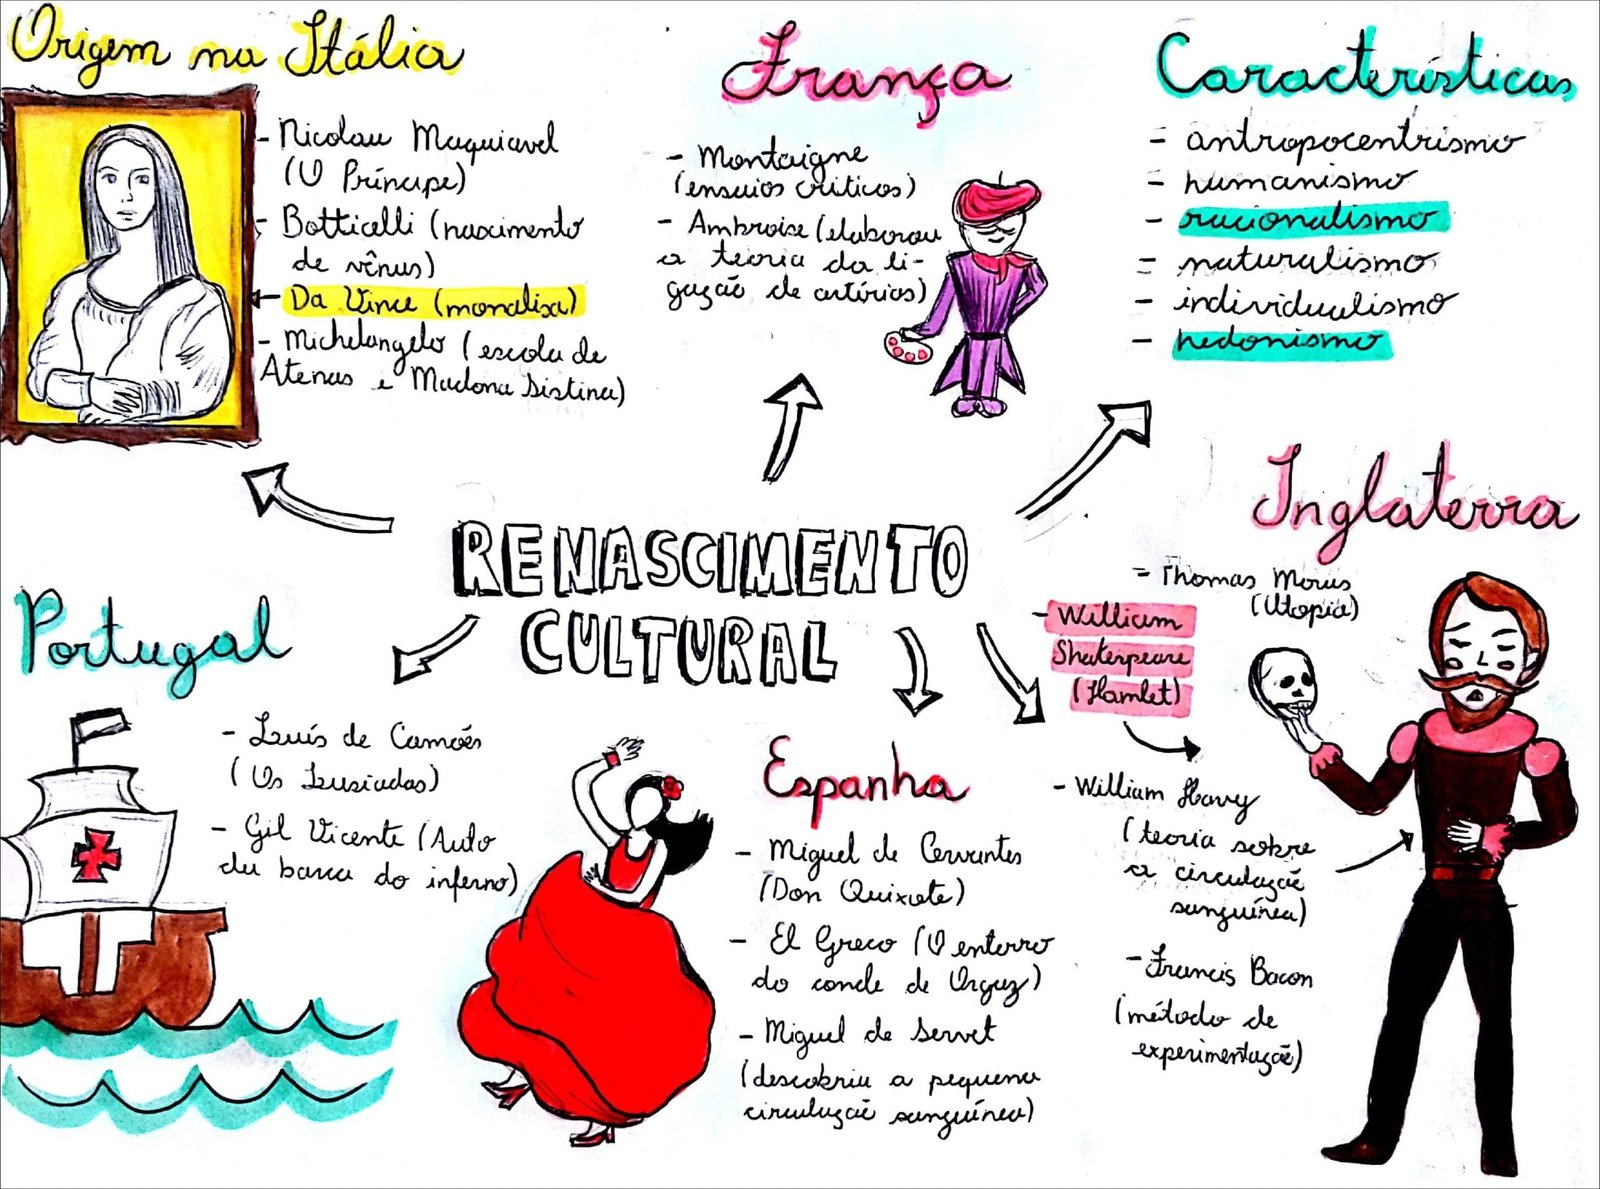 Origem na Itália
- Nicolau Maquiavel
(O Príncipe)
- Botticelli (nascimento
de vênus)
- Da Vince (monalisa)
- Michelangelo (escola de
Atenas e Madona Sistina)
França
- Montaigne
(ensaios críticos)
- Ambroise (elaborou
a teoria da li-
gação de artérias)
Características
- antropocentrismo
- humanismo
- racionalismo
- naturalismo
- individualismo
- hedonismo
RENASCIMENTO
CULTURAL
Portugal
- Luís de Camões
(Os Lusíadas)
- Gil Vicente (Auto
da barca do inferno)
Espanha
- Miguel de Cervantes
(Don Quixote)
- El Greco (O enterro
do conde de Orgaz)
- Miguel de Servet
(descobriu a pequena
circulação sanguínea)
Inglaterra
- Thomas Morus
(Utopia)
- William
Shakespeare
(Hamlet)
- William Havy
(teoria sobre
a circulação
sanguínea)
- Francis Bacon
(método de
experimentação)